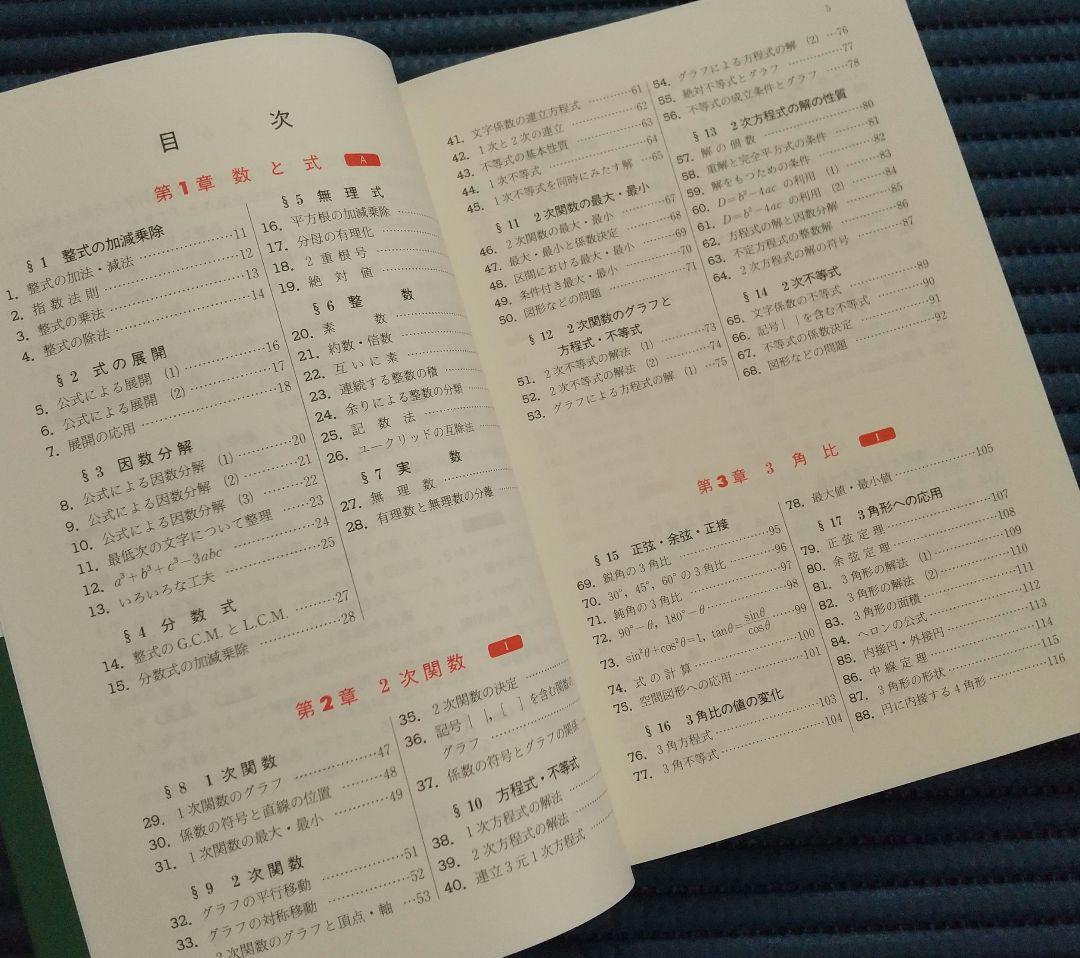 目 次
第1章 数 と 式 A
§1 整式の加減乗除
1. 整式の加法・減法 ……… 11
2. 指 数 法 則 ……… 12
3. 整式の乗法 ……… 13
4. 整式の除法 ……… 14
§2 式 の 展 開
5. 公式による展開 (1) ……… 16
6. 公式による展開 (2) ……… 17
7. 展開の応用 ……… 18
§3 因 数 分 解
8. 公式による因数分解 (1) ……… 20
9. 公式による因数分解 (2) ……… 21
10. 公式による因数分解 (3) ……… 22
11. 最低次の文字について整理 ……… 23
12. a³+b³+c³−3abc ……… 24
13. いろいろな工夫 ……… 25
§4 分 数 式
14. 整式のG.C.M.とL.C.M. ……… 27
15. 分数式の加減乗除 ……… 28
§5 無 理 式
16. 平方根の加減乗除 ………
17. 分母の有理化 ………
18. 2 重 根 号 ………
19. 絶 対 値 ………
§6 整 数
20. 素 数 ………
21. 約数・倍数 ………
22. 互 い に 素 ………
23. 連続する整数の積 ………
24. 余りによる整数の分類 ………
25. 記 数 法 ………
26. ユークリッドの互除法 ………
§7 実 数
27. 無 理 数 ………
28. 有理数と無理数の分離 ………
第2章 2 次 関 数 I
§8 1 次 関 数
29. 1次関数のグラフ ……… 47
30. 係数の符号と直線の位置 ……… 48
31. 1次関数の最大・最小 ……… 49
§9 2 次 関 数
32. グラフの平行移動 ……… 51
33. グラフの対称移動 ……… 52
2次関数のグラフと頂点・軸 … 53
35. 2次関数の決定 ………
36. 記号| |, [ ]を含む関数の
グラフ ………
37. 係数の符号とグラフの関係
§10 方程式・不等式
38. 1次方程式の解法 ………
39. 2次方程式の解法 ………
40. 連立3元1次方程式 ………
5
41. 文字係数の連立方程式 ……… 61
42. 1次と2次の連立 ……… 62
43. 不等式の基本性質 ……… 63
44. 1次不等式 ……… 64
45. 1次不等式を同時にみたす解 … 65
§11 2次関数の最大・最小
46. 2次関数の最大・最小 ……… 67
47. 最大・最小と係数決定 ……… 68
48. 区間における最大・最小 ……… 69
49. 条件付き最大・最小 ……… 70
50. 図形などの問題 ……… 71
§12 2次関数のグラフと
方程式・不等式
51. 2次不等式の解法 (1) ……… 73
52. 2次不等式の解法 (2) ……… 74
53. グラフによる方程式の解 (1) … 75
54. グラフによる方程式の解 (2) … 76
55. 絶対不等式とグラフ ……… 77
56. 不等式の成立条件とグラフ ……… 78
§13 2次方程式の解の性質
57. 解 の 個 数 ……… 80
58. 重解と完全平方式の条件 ……… 81
59. 解をもつための条件 ……… 82
60. D=b²−4ac の利用 (1) ……… 83
61. D=b²−4ac の利用 (2) ……… 84
62. 方程式の解と因数分解 ……… 85
63. 不定方程式の整数解 ……… 86
64. 2次方程式の解の符号 ……… 87
§14 2次不等式
65. 文字係数の不等式 ……… 89
66. 記号| |を含む不等式 ……… 90
67. 不等式の係数決定 ……… 91
68. 図形などの問題 ……… 92
第3章 3 角 比 I
§15 正弦・余弦・正接
69. 鋭角の3角比 ……… 95
70. 30°, 45°, 60° の3角比 ……… 96
71. 鈍角の3角比 ……… 97
72. 90°−θ, 180°−θ ……… 98
73. sin²θ+cos²θ=1, tanθ=sinθ/cosθ ……… 99
74. 式 の 計 算 ……… 100
75. 空間図形への応用 ……… 101
§16 3角比の値の変化
76. 3角方程式 ……… 103
77. 3角不等式 ……… 104
78. 最大値・最小値 ……… 105
§17 3角形への応用
79. 正 弦 定 理 ……… 107
80. 余 弦 定 理 ……… 108
81. 3角形の解法 (1) ……… 109
82. 3角形の解法 (2) ……… 110
83. 3角形の面積 ……… 111
84. ヘロンの公式 ……… 112
85. 内接円・外接円 ……… 113
86. 中 線 定 理 ……… 114
87. 3角形の形状 ……… 115
88. 円に内接する4角形 ……… 116